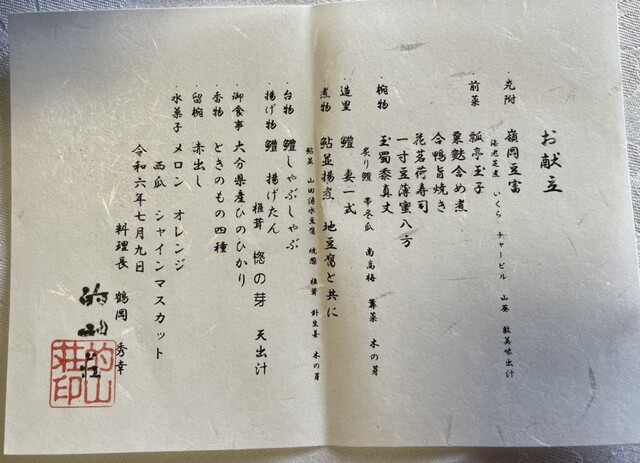 お献立
・先附 嶺岡豆富
海老芝煮 いくら チャービル 山葵 数美味出汁
・前菜 瓢亭玉子
粟麩含め煮
合鴨旨焼き
花茗荷寿司
一寸豆薄蜜八方
・椀物 玉蜀黍真丈
炙り鱧 帯冬瓜 南高梅 蓴菜 木の芽
・造里 鱧 妻一式
・煮物 鮎並揚煮 地豆腐と共に
鮎並 山田湧水豆腐 焼葱 椎茸 針生姜 木の芽
・台物 鱧しゃぶしゃぶ
・揚げ物 鱧 揚げたん
椎茸 惚の芽 天出汁
・御食事 大分県産ひのひかり
・香物 ときのもの四種
・留椀 赤出し
・水菓子 メロン オレンジ
西瓜 シャインマスカット
令和六年七月九日
料理長 鶴岡 秀幸
的山荘
的山荘印